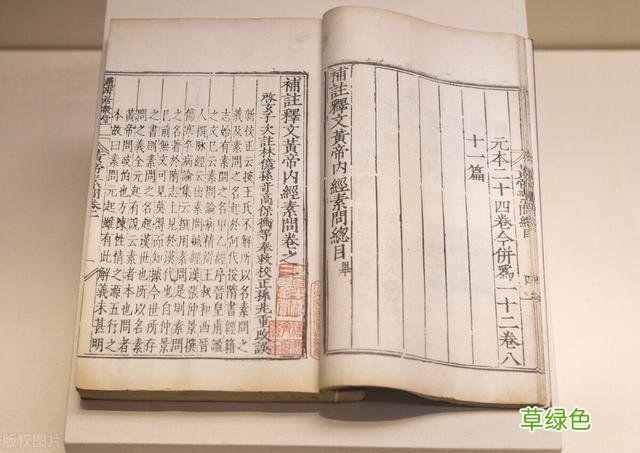 元本二十四卷今併爲一十二卷八
十一篇
補註釋文黃帝內經素問總目畢
補註釋文黃帝內經素問卷之
啓玄子次註林億孫奇高保衡等奉敕校正孫兆重改誤
新校正云按王氏不解所以名素問之
義及素問之名起於何代按隋書經籍
志始有素問之名甲乙經序晉皇甫謐
之文已云素問論病精辨王叔和西晉
人撰脉經云出素問鍼經漢張仲景撰
傷寒卒病論集云撰用素問是則素問
之名著於隋志上見於漢代也自仲景
已前無文可見莫得而知據今世所存
之書則素問之名起漢世也所以名素
問之義全元起有說云素者本也問者
黃帝問岐伯也方陳性情之源五行之
本故曰素問元起雖有此解義未甚明
草绿色
版权图片